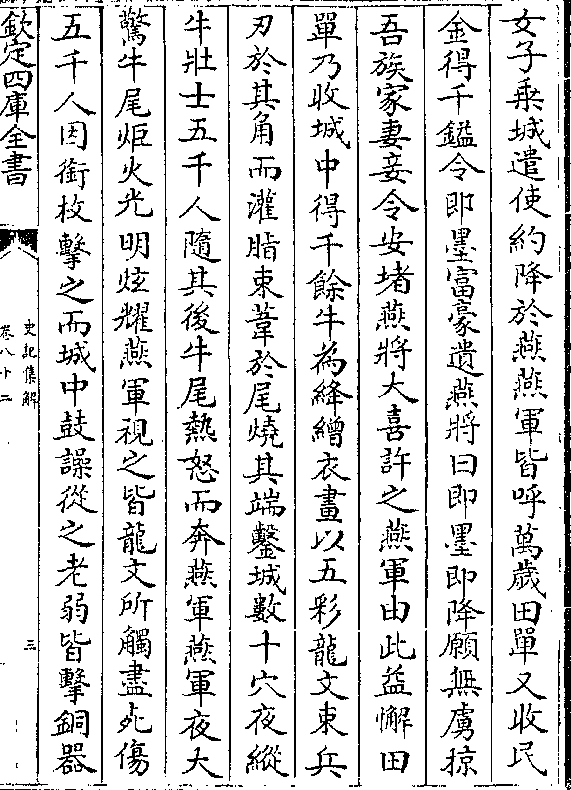 女子乗城遣使約降於燕燕軍皆呼萬歲田單又收民
金得千鎰令即墨富豪遺燕將曰即墨即降願無虜掠
吾族家妻妾令安堵燕將大喜許之燕軍由此益懈田
單乃收城中得千餘牛為絳繒衣畫以五彩龍文束兵
刃於其角而灌脂束葦於尾燒其端鑿城數十穴夜縱
牛壯士五千人隨其後牛尾熱怒而奔燕軍燕軍夜大
驚牛尾炬火光明炫耀燕軍視之皆龍文所觸盡死傷
五千人因銜枚擊之而城中鼓譟從之老弱皆擊銅器
欽定四庫全書
史記集解
卷八十二
三